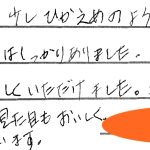 少しひかえめのよう
はしっかりありました.
しくいただけました.
見た目もおいしく
います。